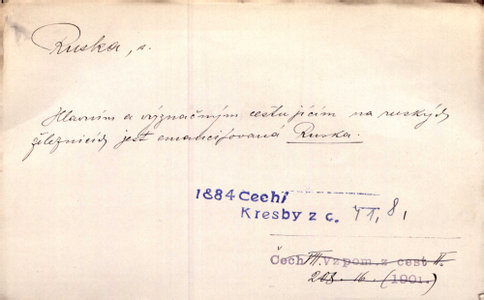 Ruska, s.
Hlavním a význačným cestujícím na ruských
železnicích jest emancipovaná Ruska.
1884 Cech:
Kresby z c. 81
Čech III. vzpom. z cest II.
16 (1901.